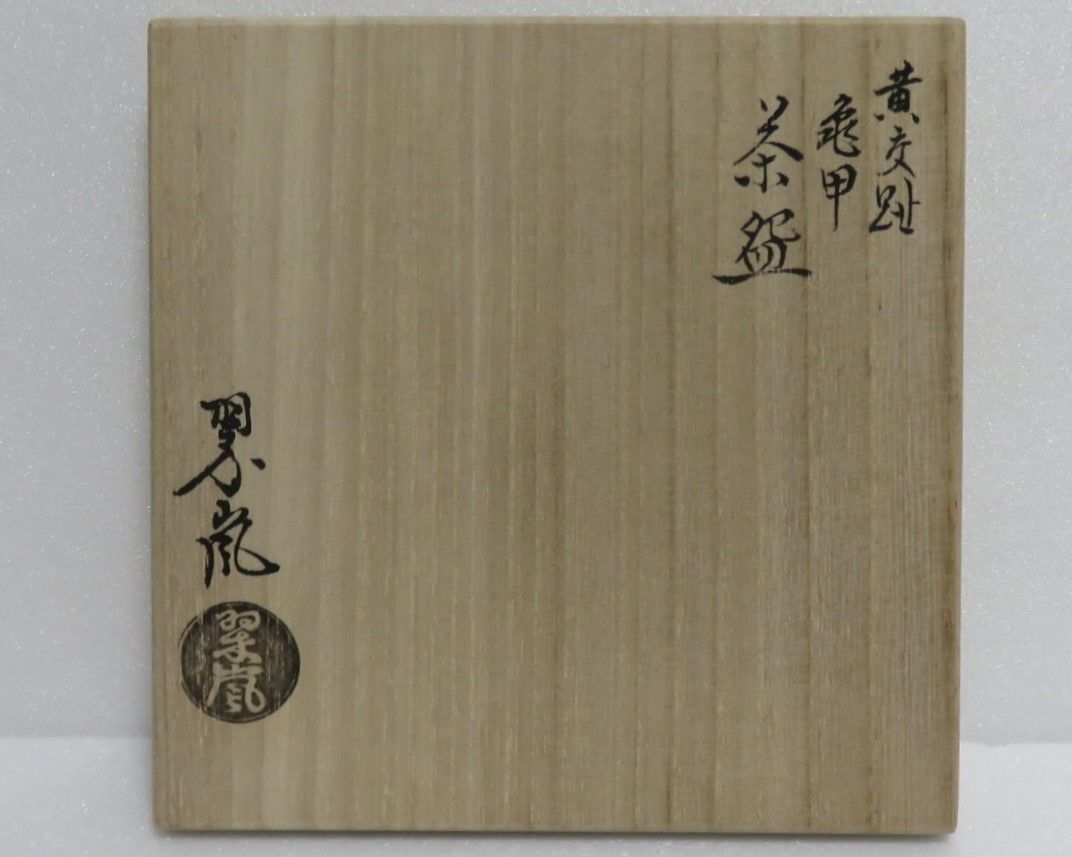 黄交趾
亀甲
茶盌
翠嵐
翠嵐